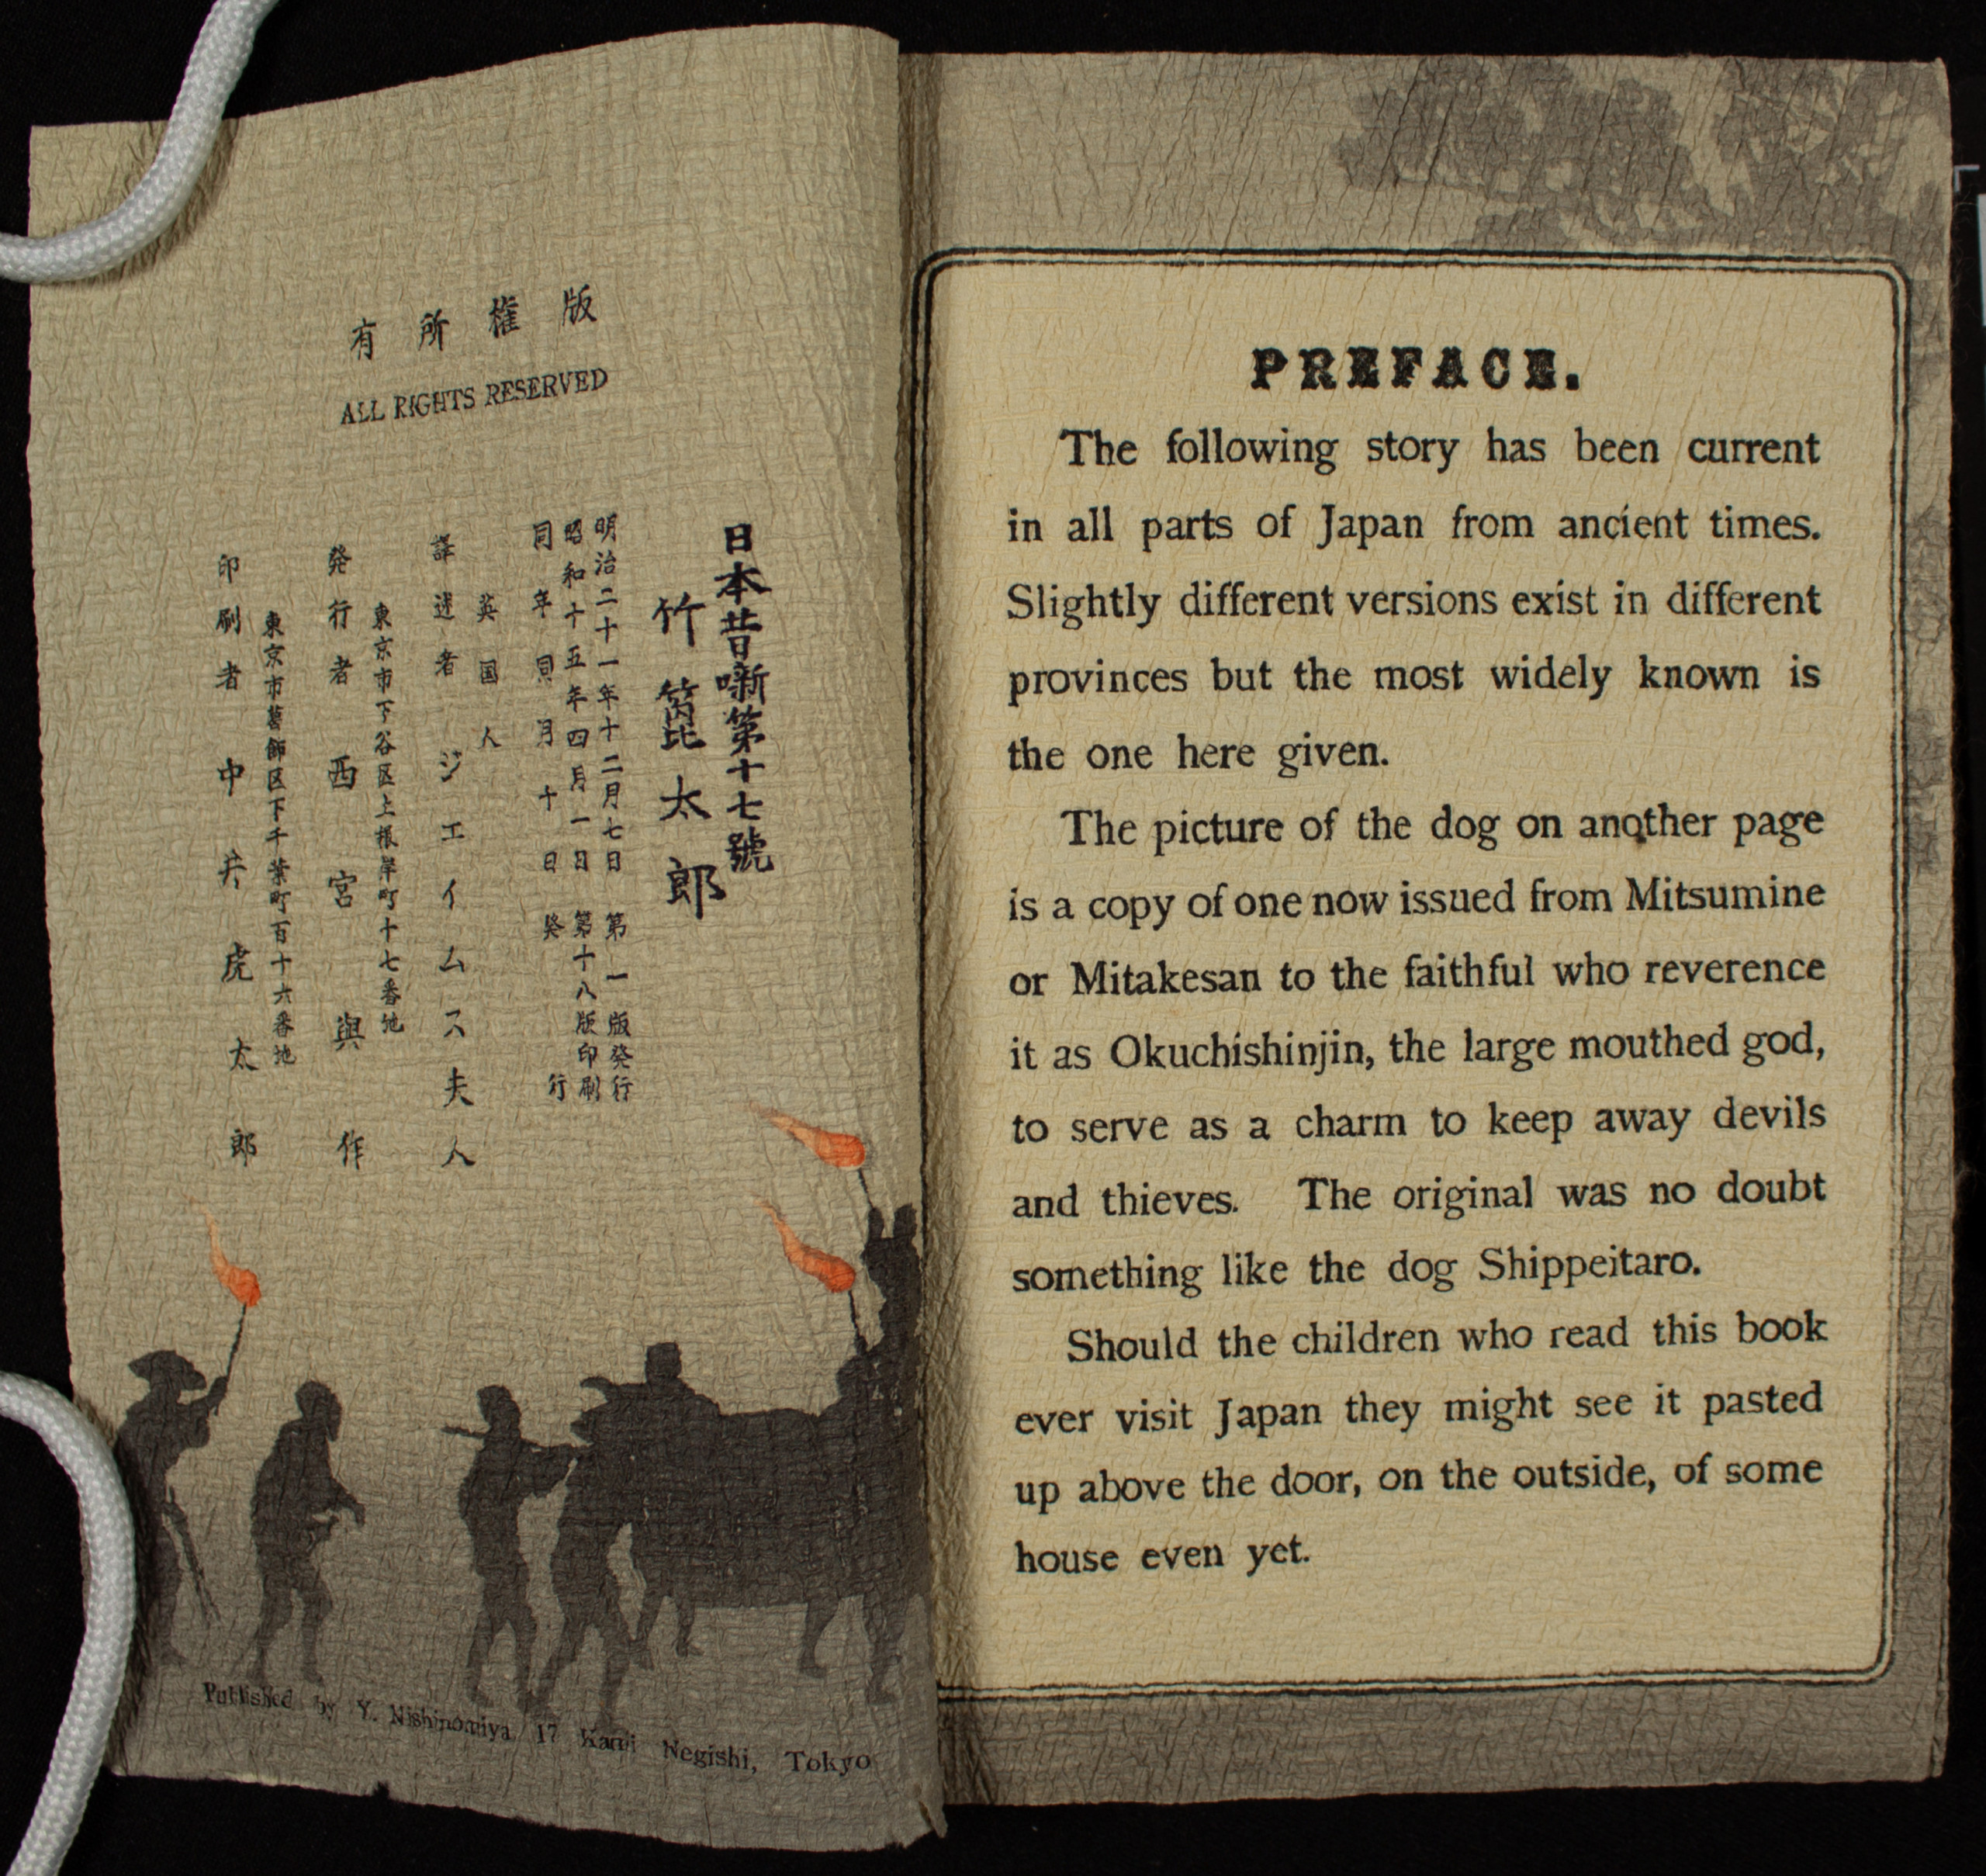 版權所有
ALL RIGHTS RESERVED
日本昔噺第十七號
竹篦太郎
明治二十一年十二月七日 第一版発行
昭和十五年四月一日 第十八版印刷
同年同月十日発行
英国人
譯述者 ジエイムス夫人
東京市下谷区上根岸町十七番地
発行者 西宮與作
東京市葛飾区下千葉町百十六番地
印刷者 中兵虎太郎
Published by Y. Nishinomiya 17 Kami Negishi, Tokyo
PREFACE.
The following story has been current
in all parts of Japan from ancient times.
Slightly different versions exist in different
provinces but the most widely known is
the one here given.
The picture of the dog on another page
is a copy of one now issued from Mitsumine
or Mitakesan to the faithful who reverence
it as Okuchishinjin, the large mouthed god,
to serve as a charm to keep away devils
and thieves. The original was no doubt
something like the dog Shippeitaro.
Should the children who read this book
ever visit Japan they might see it pasted
up above the door, on the outside, of some
house even yet.